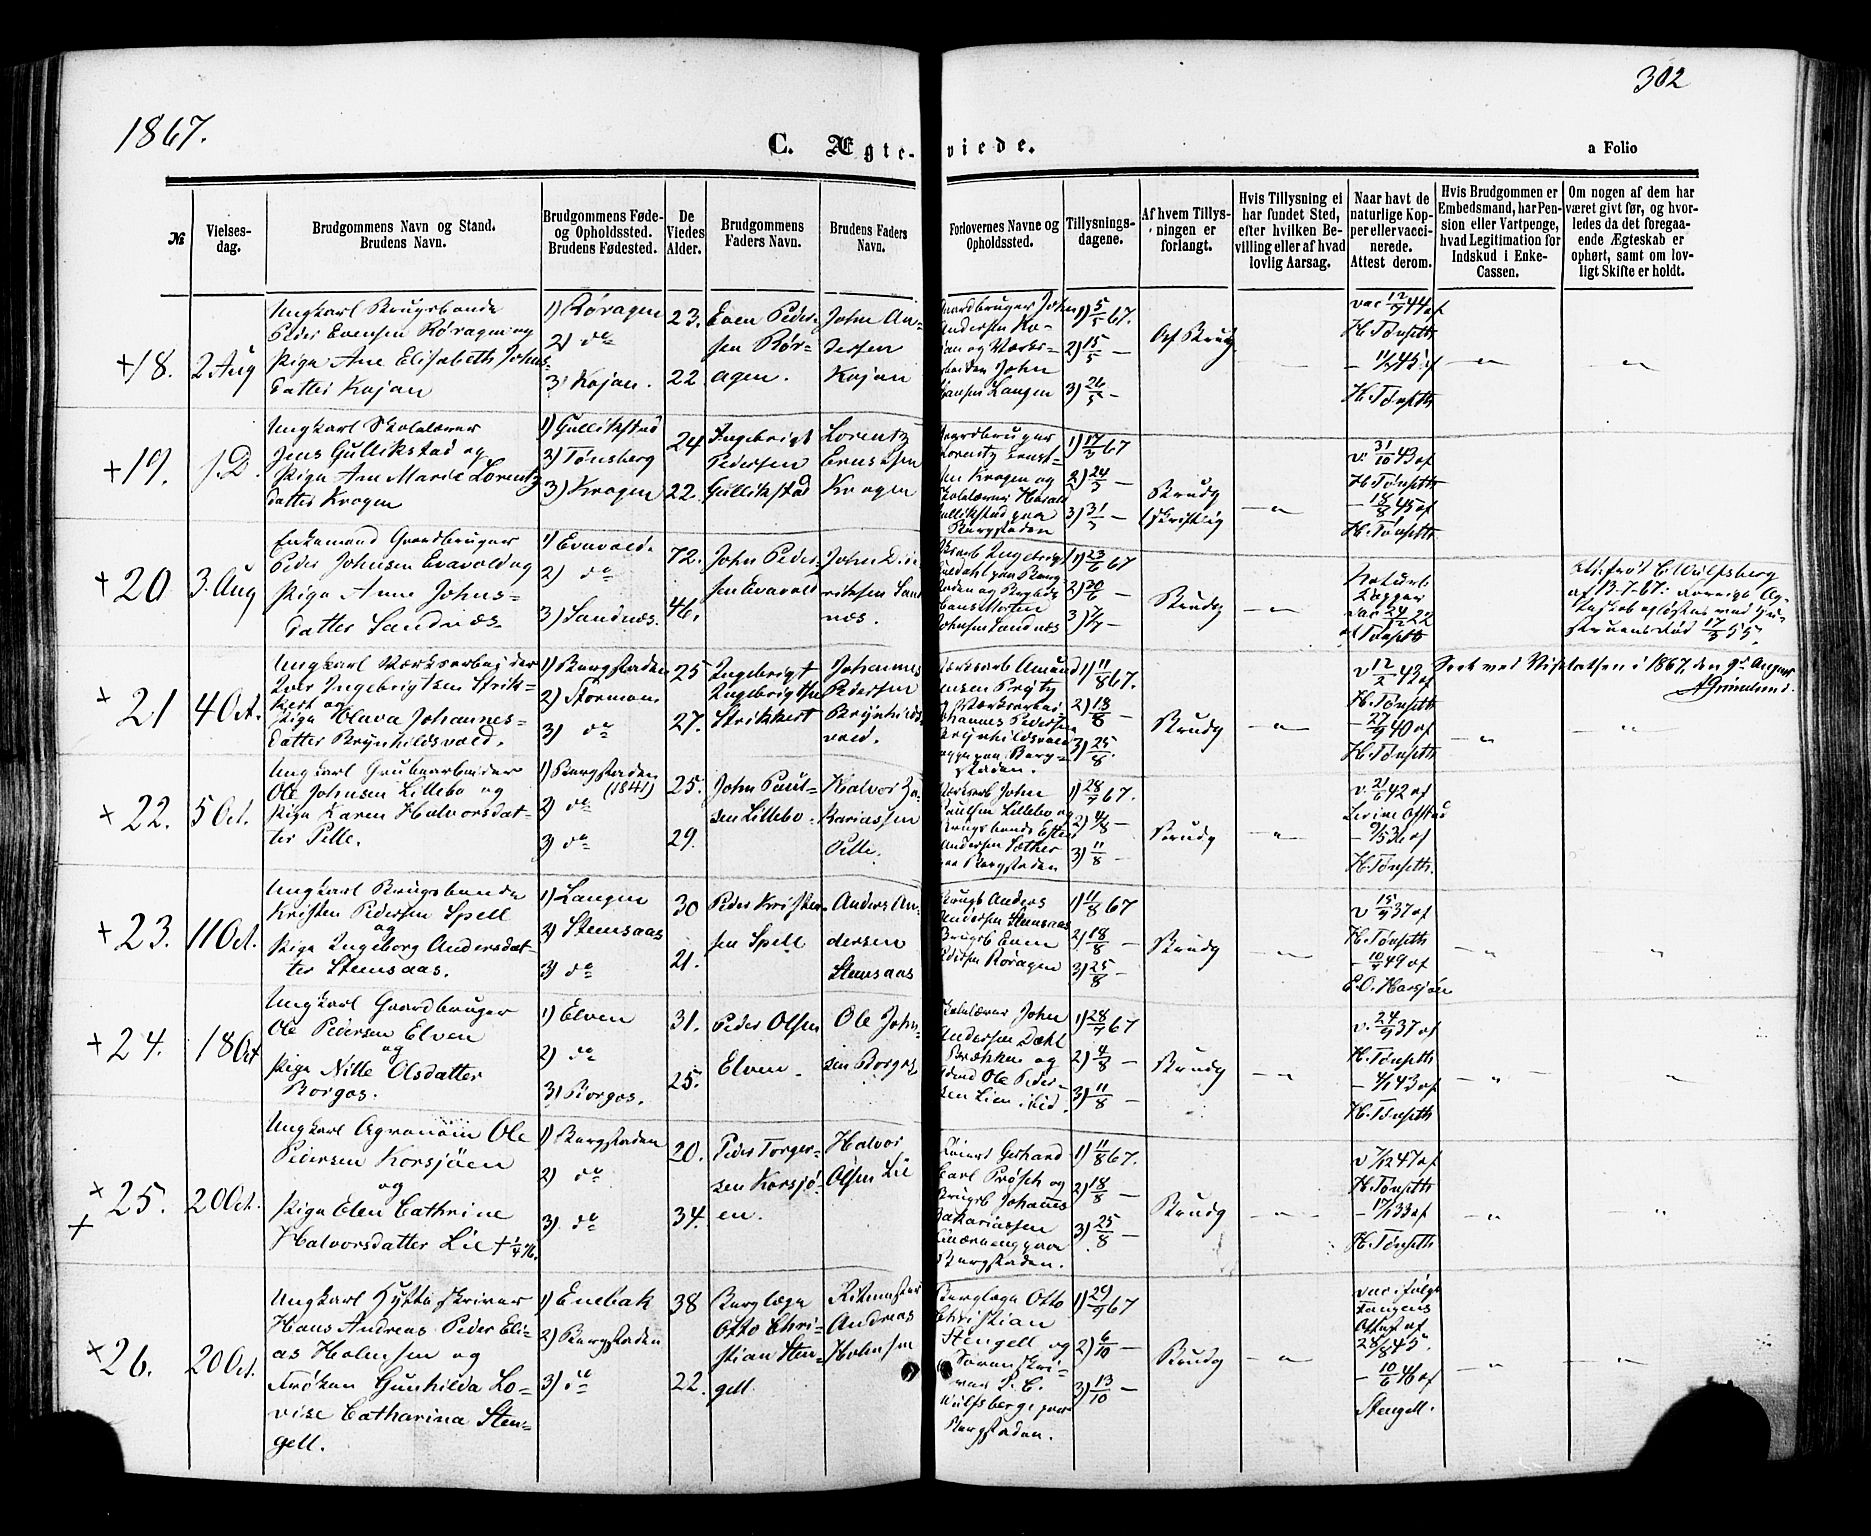 302
1867.
C. Ægte-viede.
a Folio
№
Vielses-
dag.
Brudgommens Navn og Stand.
Brudens Navn.
Brudgommens Føde-
og Opholdssted.
Brudens Fødested.
De
Viedes
Alder.
Brudgommens
Faders Navn.
Brudens Faders
Navn.
Forlovernes Navne og
Opholdssted.
Tillysnings-
dagene.
Af hvem Tillys-
ningen er
forlangt.
Hvis Tillysning ei
har fundet Sted,
efter hvilken Be-
villing eller af hvad
lovlig Aarsag.
Naar havt de
naturlige Kop-
per eller vacci-
nerede.
Attest derom.
Hvis Brudgommen er
Embedsmand, har Pen-
sion eller Vartpenge,
hvad Legitimation for
Indskud i Enke-
Cassen.
Om nogen af dem har
været givt før, og hvor-
ledes da det foregaa-
ende Ægteskab er
ophørt, samt om lov-
ligt Skifte er holdt.
+18.
2 Aug
Ungkarl Brugsbonde
Peder Evensen Røragen og
Pige Ane Elisabeth Johns-
datter Kojan
1) Røragen
2) do
3) Kojan.
23.
22.
Even Peder-
sen Rør-
agen.
John An-
dersen
Kojan
Gaardbruger John
Andersen Ko-
jan og Værks-
arbeider John
Hansen Langen
1) 5/5 67.
2) 15/5 —
3) 26/5 —
Af Brudg
vac 12/9 44 af
H. Tønseth
— 11/7 45 af
H. Tønseth
+19.
s. D.
Ungkarl Skolelærer
Jens Gullikstad og
Pige Ane Marie Lorentz
datter Krogen
1) Gullikstad
2) Tønsberg
3) Krogen
24
22.
Ingebrigt
Pedersen
Gullikstad
Lorentz
Ernstsen
Krogen
Gaardbruger
Lorentz Ernst-
sen Krogen og
Skolelærer Harald
Gullikstad paa
Bergstaden
1) 17/3 67
2) 24/3 —
3) 31/3 —
Brudg
skriftlig
v. 31/10 43 af
H. Tønseth
— 18/8 45 af
H. Tønseth
+20
3. Aug
Enkemand Gaardbruger
Peder Johnsen Evavold og
Pige Anne Johns-
datter Sandnæs
1) Evavold.
2) do
3) Sandnæs.
72.
46.
John Peder-
sen Evavold
John Did-
riksen Sand
næs.
Morten
Johnsen Sandnæs
1) 23/6 67
2) 30/6 —
3) 7/7 —
Brudg
Naturl.
Kopper
vac 24/7 22
af Tønseth
Attest fra C. Wulfsberg
af 13-7-67: forrige Æg-
teskab opløstes ved Hu-
struens Død 17/3 55.
+21
4 Oct.
Ungkarl Værksarbeider
Iver Ingebrigtsen Strik-
kert og
Pige Olava Johannes-
datter Brynhildsvold.
1) Bergstaden
2) Stormoen
3) do
25
27.
Ingebrigt
Ingebrigtsen
Strikkert
Johannes
Pedersen
Brynhilds
vold.
Værksarb Amund
Jensen Prytz
og Værksarbei.
Johannes Pedersen
Brynhildsvold
begge paa Berg-
staden.
1) 11/8 67.
2) 18/8 —
3) 25/8 —
Brudg
v 12/2 43 af
H. Tønseth
— 27/9 40 af
H. Tønseth
Seet ved Visitatsen i 1867 den 9de August
AGrimelund.
+22.
5 Oct.
Ungkarl Grubearbeider
Ole Johnsen Lillebo og
Pige Karen Halvorsdat-
ter Pelle.
1) Bergstaden
(1841)
2) do
3) do
25.
29.
John Paul-
sen Lillebo.
Halvor Za-
kariassen
Pelle.
Værksarb John
Paulsen Lillebo og
Brugsbonde Esten
Andersen Sæther
paa Bergstaden
1) 28/7 67.
2) 4/8 —
3) 11/8 —
Brudg
v. 21/6 42 af
— 9/5 36 af
H. Tønseth.
+23.
11 Oct.
Ungkarl Brugsbonde
Kristen Pedersen Spell
og
Pige Ingeborg Andersdat-
ter Stensaas.
1) Langen
2) Stensaas
3) do
30
21.
Peder Kristen-
sen Spell
Anders An-
dersen
Stensaas
Brugsb Anders
Andersen Stensaas
Brugsb Even
Røragen
1) 11/8 67
2) 18/8 —
3) 25/8 —
Brudg
v 15/9 37 af
H. Tønseth
— 10/9 49 af
E. O. Harsjøen
+24.
18 Oct
Ungkarl Gaardbruger
Ole Pedersen Elven
og
Pige Nille Olsdatter
Borgos.
1) Elven
2) do
3) Borgos.
31.
25.
Peder Olsen
Elven.
Ole John-
sen Borgos
Skolelærer John
Andersen Dahl
Brækken og
Ole Peder-
sen Lien ibid.
1) 28/7 67
2) 4/8 —
3) 11/8 —
Brudg
v. 24/9 37 af
H. Tønseth
— 4/1 43 af
H. Tønseth
+25.
+
20 Oct.
Ungkarl Agronom Ole
Pedersen Korsjøen
og
Pige Elen Cathrine
Halvorsdatter Lie
1) Bergstaden
2) do
3) do
20.
34.
Peder Torger-
sen Korsjø-
en.
Halvor
Olsen Lie
Gerhard
Carl Prøsch og
Brugsb Johannes
Zakariassen
paa
Bergstaden.
1) 11/8 67.
2) 18/8 —
3) 25/8 —
Brudg
v 7/12 47 af
H. Tønseth
— 17/1 33 af
H. Tønseth
+26.
20 Oct.
Ungkarl Hytteskriver
Hans Andreas Peder Eli-
as Holmsen og
Frøken Gunhilda Lo-
vise Catharina Sten-
gell.
1) Enebak
2) Bergstaden
3) do
38
22.
Berglæge
Otto Chri-
stian Sten-
gell
Ritmester
Andreas
Holmsen
Berglæge Otto
Christian
Stengell og
Sorenskri-
ver P. C.
Wulfsberg paa
Bergstaden.
1) 29/9 67
2) 6/10 —
3) 13/10 —
Brudg
vac ifølge
Fangens
Attest af
28/8 45.
— 10/6 46 af
Stengell.